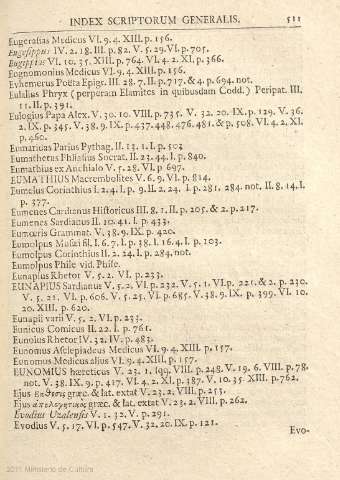 INDEX SCRIPTORUM GENERALIS. 511
Eugerasias Medicus VI. 9. 4. XIII. p. 156.
Eugesippus IV. 2. 18. III. p. 82. V. 5. 29. VI. p. 705.
Eugippius VI. 10. 35. XIII. p. 764. VI. 4. 2. XI. p. 366.
Eugnomonius Medicus VI. 9. 4. XIII. p. 156.
Evhemerus Poëta Epigr. III. 28. 7. II. p. 717. & 4. p. 694. not.
Eulilius Phryx (perperam Elamites in quibusdam Codd.) Peripat. III.
11. II. p. 391.
Eulogius Papa Alex. V. 30. 10. VIII. p. 735. V. 32. 20. IX. p. 129. V. 36.
2. IX. p. 345. V. 38. 9. IX. p. 437. 448. 476. 481. & p. 508. VI. 4. 2. XI.
p. 460.
Eumaridas Parius Pythag. II. 13. 1. I. p. 502
Eumatheras Phliasius Socrat. II. 23. 44. I. p. 840.
Eumathius ex Anchialo V. 5. 28. VI. p 697.
EUMATHIUS Macrembolites V. 6. 9. VI. p. 814.
Eumelus Corinthius I. 2. 4. I. p. 9. II. 2. 24. I. p. 281. 284. not. II. 8. 14. I.
p. 377.
Eumenes Cardianus Historicus III. 8. 1. II. p. 205. & 2. p. 217.
Eumenes Sardianus II. 10. 41. I. p. 433.
Eumœris Grammat. V. 38. 9. IX. p. 420.
Eumolpus Musæi fil. I. 6. 7. I. p. 38. I. 16. 4. I. p. 103.
Eumolpus Corinthius II. 2. 24. I. p. 284. not.
Eumolpus Phile vid. Phile.
Eunapius Rhetor V. 5. 2. VI. p. 233.
EUNAPIUS Sardianus V. 5. 2. VI. p. 232. V. 5. 1. VI. p. 221. & 2. p. 230.
V. 5. 21. VI. p. 606. V. 5. 25. VI. p. 685. V. 38. 9. IX. p. 399. VI. 10.
20. XIII. p. 620.
Eunapii varii V. 5. 2. VI. p. 233.
Eunicus Comicus II. 22. I. p. 761.
Eunoius Rhetor IV. 32. IV. p. 483.
Eunomus Asclepiadeus Medicus VI. 9. 4. XIII. p. 157.
Eunomus Medicus alius VI. 9. 4. XIII. p. 157.
EUNOMIUS hæreticus V. 23. 1. sqq. VIII. p. 248. V. 19. 6. VIII. p. 78.
not. V. 38. IX. 9. p. 417. VI. 4. 2. XI. p. 387. V. 10. 35. XIII. p. 762.
Ejus ἔκθεσις græc. & lat. extat V. 23. 2. VIII. p. 253.
Ejus ἀπολογητικὸς græc. & lat. extat V. 23. 2. VIII. p. 262.
Evodius Uzalensis V. 1. 32. V. p. 291.
Evodius V. 5. 17. VI. p. 547. V. 32. 20. IX. p. 121.
Evo-
2011 Ministerio de Cultura